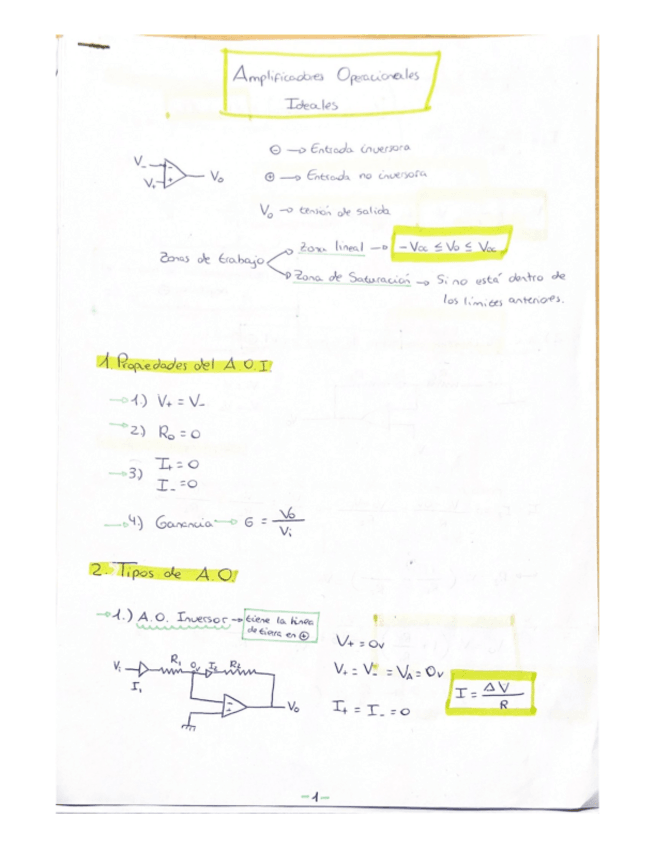 Amplificadores Operacionales
Ideales
⊖ → Entrada inversora
V-
V+
Vo
⊕ → Entrada no inversora
Vo → tensión de salida
Zonas de trabajo
Zona lineal → -Vcc ≤ Vo ≤ Vcc
Zona de Saturación → Si no está dentro de
los límites anteriores.
1. Propiedades del A.O.I.
→ 1.) V+ = V-
→ 2) Ro = 0
→ 3) I+ = 0
I- = 0
→ 4.) Ganancia → G = Vo / Vi
2. Tipos de A.O.
→ 1.) A.O. Inversor → tiene la línea
de tierra en ⊕
V+ = 0v
Vi R1 0v I2 R2
I1
Vo
V+ = V- = VA = 0v
I+ = I- = 0
I = ΔV / R
-1-